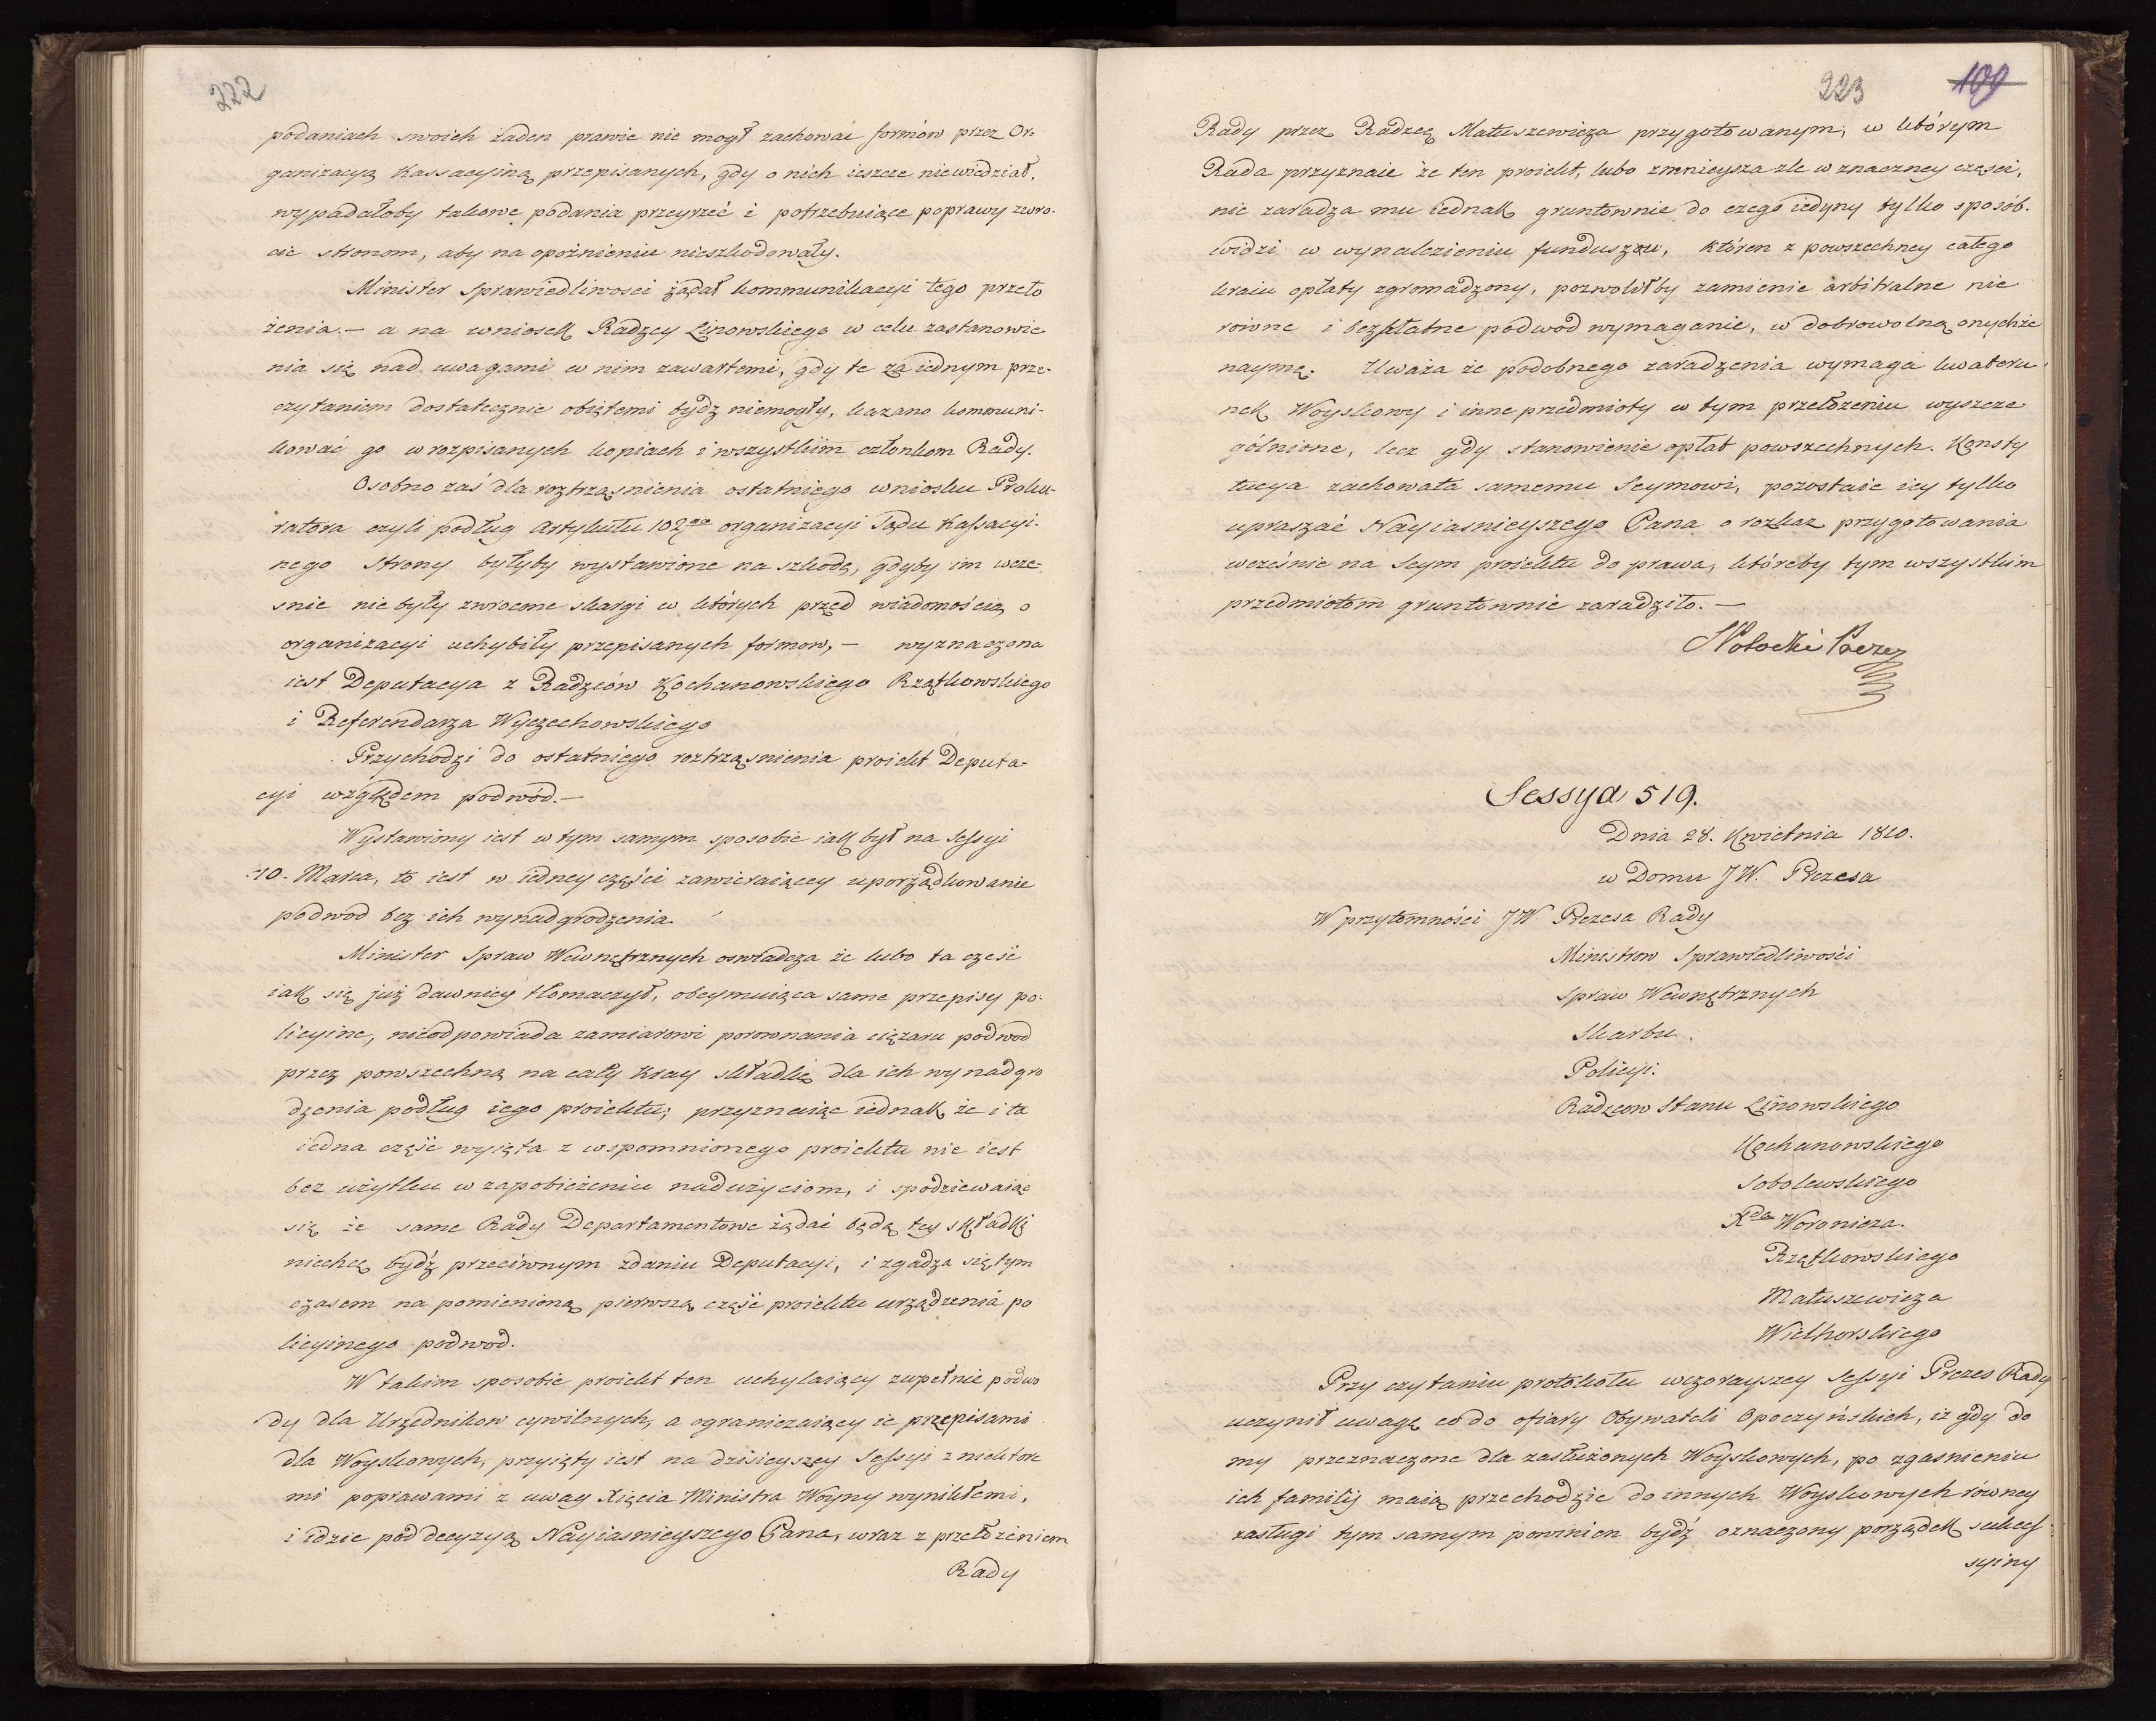 222
podaniach swoich żaden prawie nie mogł zachować formów przez Or-
ganizacyą Kassacyiną przepisanych, gdy o nich ieszcze niewiedział,
wypadałoby takowe podania przeyrzeć i potrzebuiące poprawy zwro-
cić stronom, aby na opoźnieniu nieszkodowały.
Minister Sprawiedliwosci żądał kommunikacyi tego przeło
żenia. – a na wniosek Radzcy Linowskiego w celu zastanowie
nia się nad uwagami w nim zawartemi, gdy te za iednym prze-
czytaniem dostatecznie obiętemi bydz niemogły, kazano kommuni-
kować go w rozpisanych kopiach i wszystkim członkom Rady.
Osobno zaś dla roztrząsnienia ostatniego wniosku Proku-
ratora czyli podług Artykułu 102go organizacyi Sądu Kassacyi-
nego Strony byłyby wystawione na szkodę, gdyby im wcze-
snie nie były zwrocone skargi w których przed wiadomością o
organizacyi uchybiły przepisanych formow, – wyznaczona
iest Deputacya z Radzców Kochanowskiego Rzątkowskiego
i Referendarza Wyczechowskiego
Przychodzi do ostatniego roztrząsnienia proiekt Deputa-
cyi względem podwód. –
Wystawiony iest w tym samym sposobie iak był na Sessyi
10. Marca, to iest w iedney części zawieraiącey uporządkowanie
podwod bez ich wynadgrodzenia.
Minister Spraw Wewnętrznych oswiadcza że lubo ta cześć
iak się już dawniey tłomaczył, obeymuiąca same przepisy po-
licyine, nieodpowiada zamiarowi porownania ciężaru podwod
przez powszechną na cały Kray składkę dla ich wynadgro
dzenia podług iego proiektu; przyznaiąc iednak że i ta
iedna część wyięta z wspomnionego proiektu nie iest
bez użytku w zapobieżeniu nadużyciom, i spodziewaiąc
się że same Rady Departamentowe żądać będą tey składki
niechcę bydź przeciwnym zdaniu Deputacyi, i zgadza się tym
czasem na pomienioną pierwszą część proiektu urządzenia po
licyinego podwod.
W takim sposobie proiekt ten uchylaiący zupełnie podwo
dy dla Urzędnikow cywilnych, a ograniczaiący ie przepisami
dla Woyskowych, przyięty iest na dzisieyszey Sessyi z niektore
mi poprawami z uwag Xięcia Ministra Woyny wynikłemi,
i idzie pod decyzyą Nayiasnieyszego Pana, wraz z przełożeniem
Rady
223
109
Rady przez Radzcę Matuszewicza przygotowanym, w którym
Rada przyznaie że ten proiekt, lubo zmnieysza złe w znaczney części,
nie zaradza mu iednak gruntownie do czego iedyny tylko sposób
widzi w wynalezieniu funduszu, któren z powszechney całego
kraiu opłaty zgromadzony, pozwoliłby zamienić arbitralne nie
roiwne i bezpłatne podwod wymaganie, w dobrowolną onychże
naymę. Uważa że podobnego zaradzenia wymaga kwateru-
nek Woyskowy i inne przedmioty w tym przełożeniu wyszcze-
gólnione, lecz gdy stanowienie opłat powszechnych. Konsty
tucya zachowała samemu Seymowi, pozostaie iey tylko
upraszać Nayiasnieyszego Pana o rozkaz przygotowania
wcześnie na Seym proiektu do prawa, któreby tym wszystkim
przedmiotom gruntownie zaradziło. –
S Potocki Prezez
Sessya 519.
Dnia 28. Kwietnia 1810.
w Domu JW. Prezesa
W przytomności JW Prezesa Rady
Ministrow Sprawiedliwości
Spraw Wewnętrznych
Skarbu.
Policyi.
Radzcow Stanu Linowskiego
Kochanowskiego
Sobolewskiego
Xdza Woronicza.
Rzątkowskiego
Matuszewicza
Wielhorskiego
Przy czytaniu protokołu wczorayszey Sessyi Prezes Rady
uczynił uwagę co do ofiary Obywateli Opoczyńskich, iż gdy do
my przeznaczone dla zasłużonych Woyskowych, po zgasnieniu
ich familij maią przechodzić do innych Woyskowych równey
zasługi tym samym powinien bydź oznaczony porządek sukces-
syiny